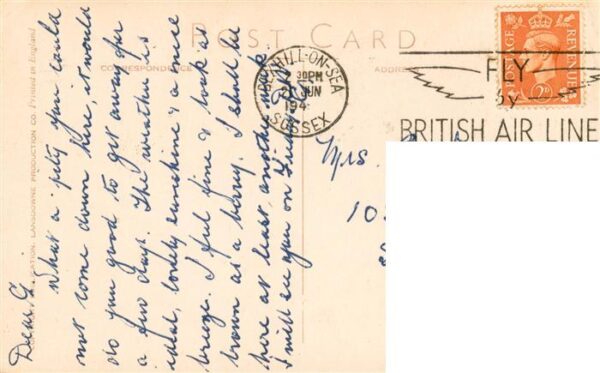 POST CARD
CORRESPONDENCE
ADDRESS
LANSDOWNE PRODUCTION CO. Printed in England
Dear G
What a pity you could
not come down here, it would
do you good to get away for
a few days. The weather is
ideal, lovely sunshine & a nice
breeze. I feel fine & look as
brown as a berry. I shall be
here at least another week
I will see you on Friday
BEXHILL-ON-SEA
30PM
JUN
194
SUSSEX
FLY
by
BRITISH AIR LINE
POSTAGE
REVENUE
2D
Mrs.
10